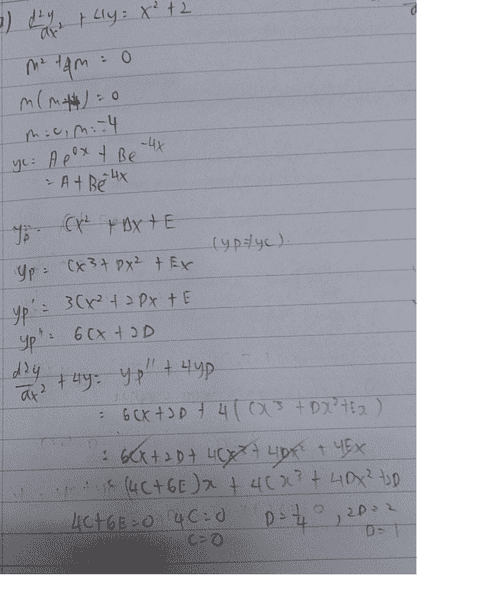 d²y/dx² + 4y = x² + 2
m² + 4m = 0
m(m+4) = 0
m = 0, m = -4
yc = Ae^0x + Be^-4x
= A + Be^-4x
yp = Cx² + Dx + E
(yp≠yc)
yp = Cx³ + Dx² + Ex
yp' = 3Cx² + 2Dx + E
yp" = 6Cx + 2D
d²y/dx² + 4y = yp" + 4yp
= 6Cx + 2D + 4(Cx³ + Dx² + Ex)
= 6Cx + 2D + 4Cx³ + 4Dx² + 4Ex
(4C+6E)x + 4Cx³ + 4Dx² + 2D
4C+6E=0 4C=0 D=1/4, 2D=2
C=0 D=1